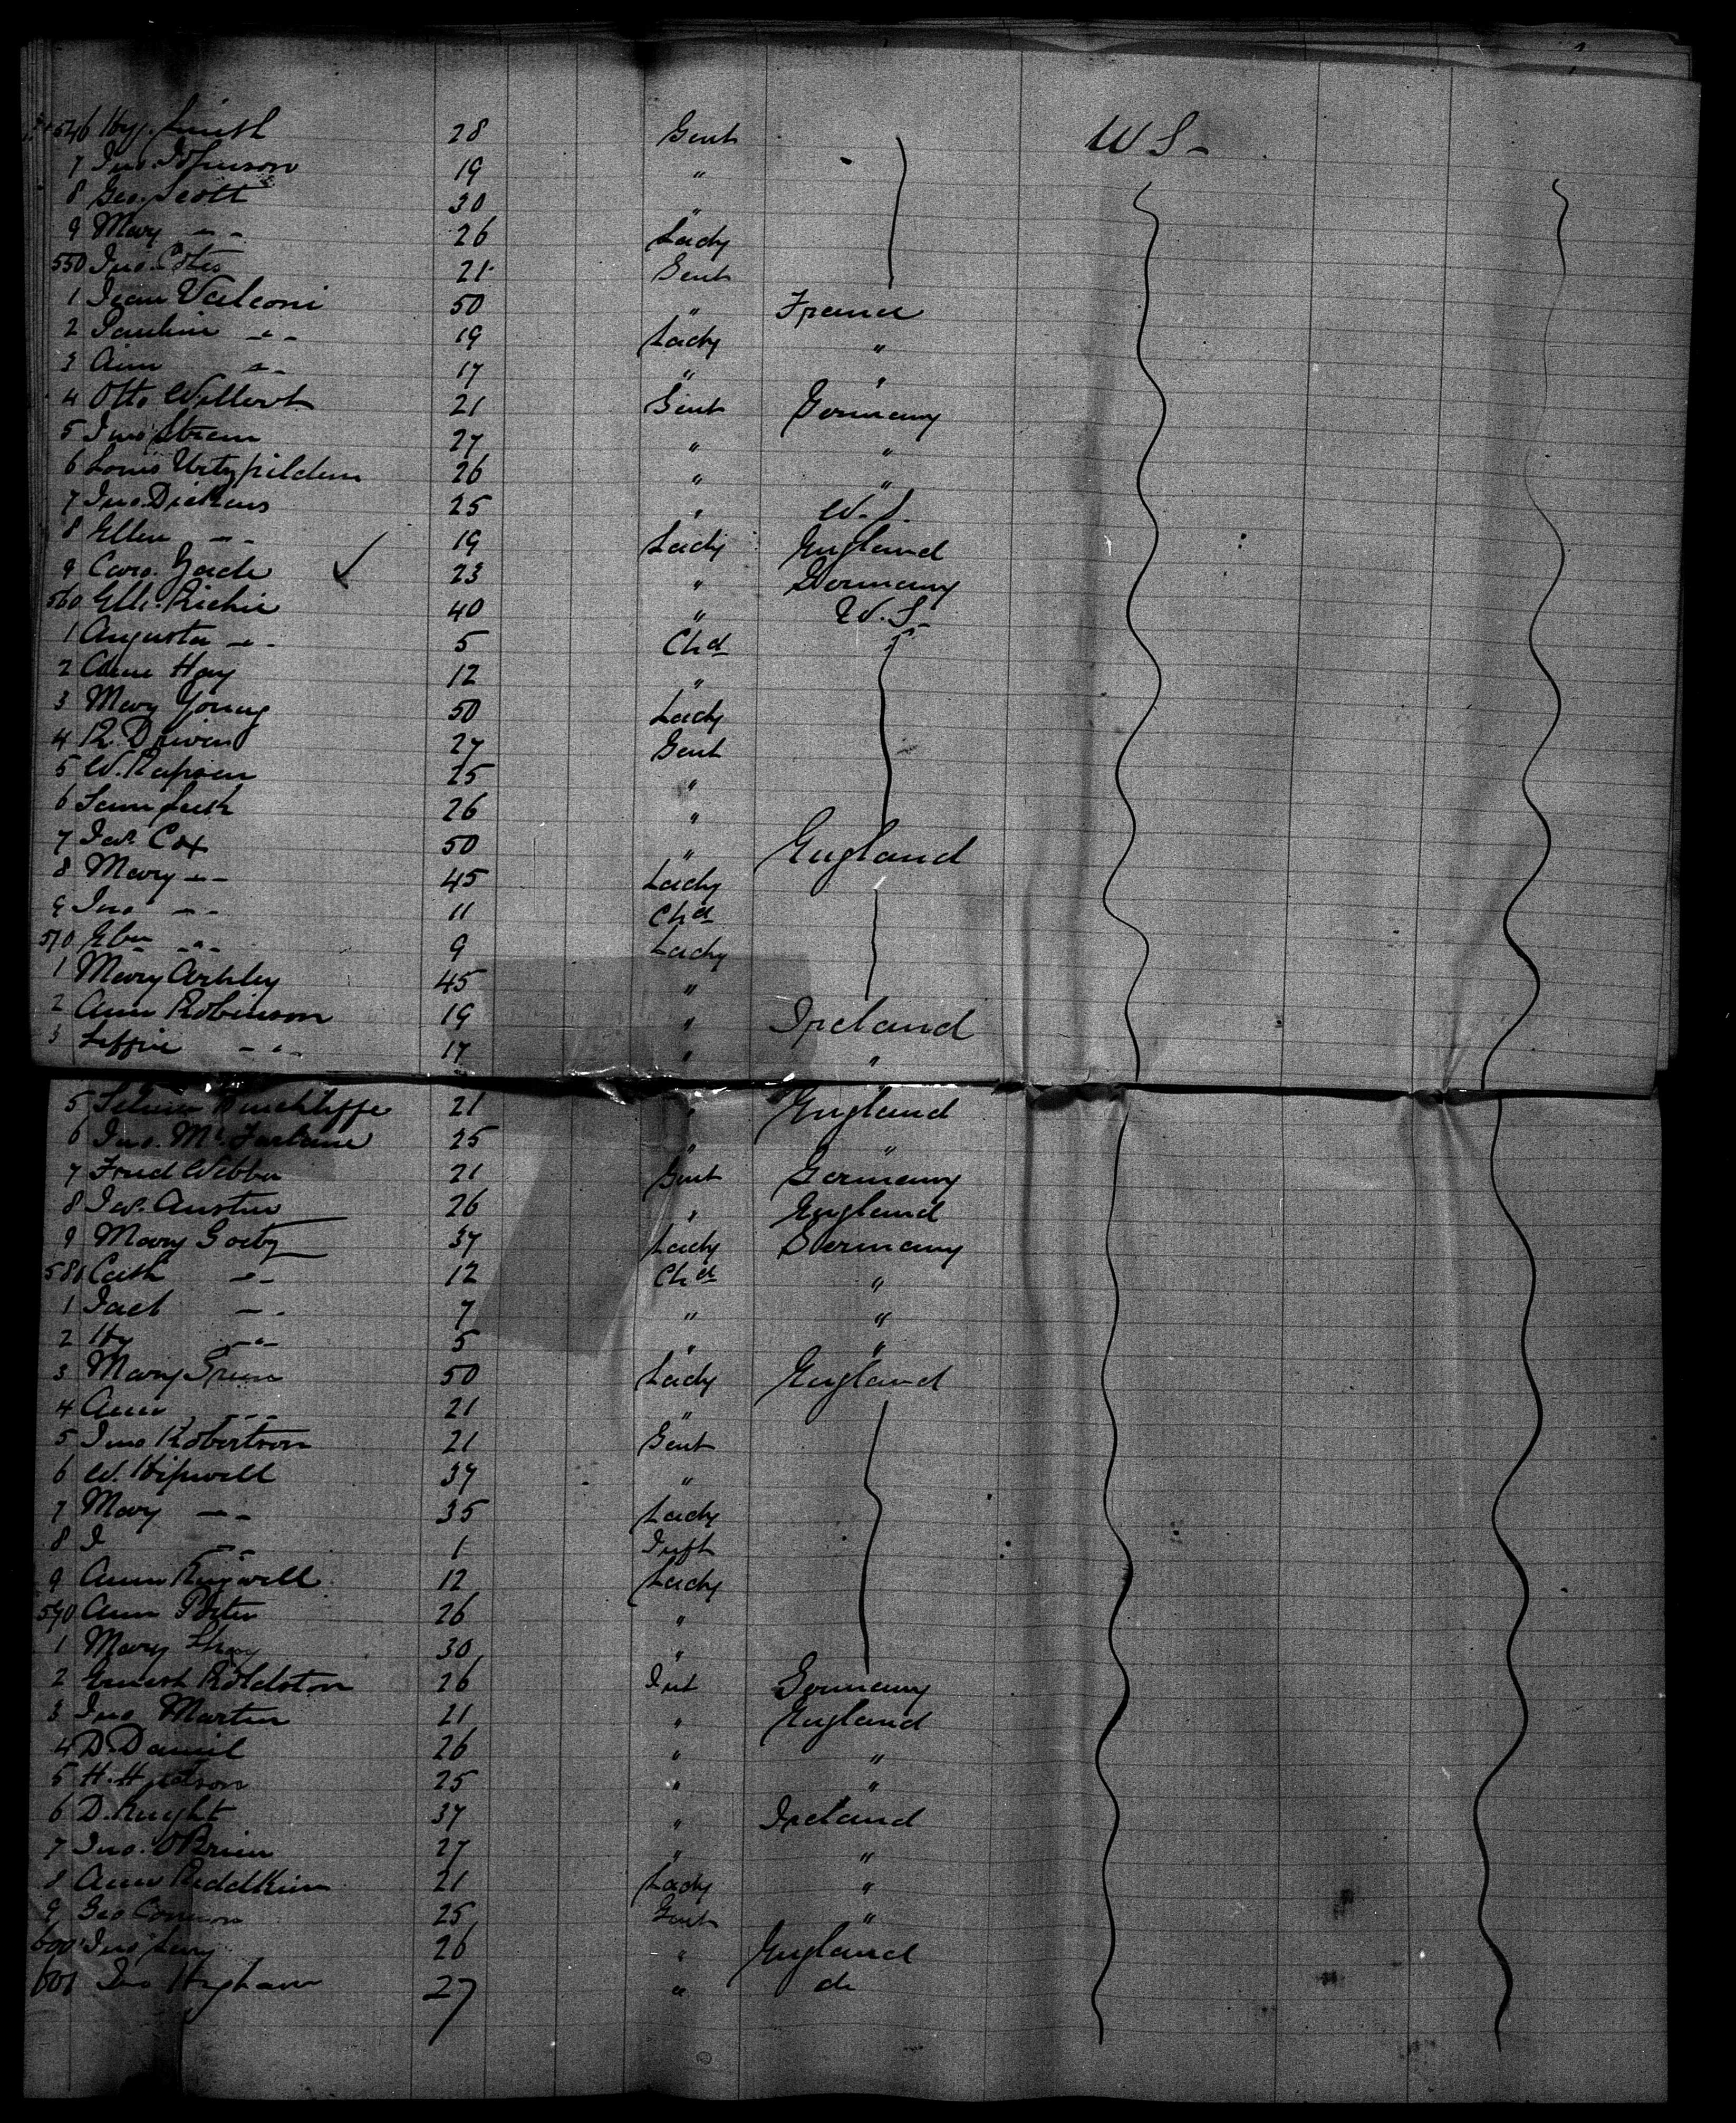 546 Hy. Smith 28 Gent U S -
7 Jno. Johnson 19 "
8 Geo. Scott 30 "
9 Mary -"- 26 Lady
550 Jno. 21 Gent
1 Jean Valconi 50 " France
2 Pauline -"- 19 Lady "
3 Ann -"- 17 " "
4 Otto Willert 21 Gent Germany
5 Jno 27 " "
6 Louis 26 " "
7 Jno. Dickens 25 " U. S.
8 Ellen -"- 19 Lady England
9 Caro. Gade 23 " Germany
560 Ellr. Richie 40 " U. S.
1 Augusta -"- 5 Chd "
2 Anne Hay 12 "
3 Mary Young 50 Lady
4 R. Driven 27 Gent
5 W. 25 "
6 Sam 26 "
7 Jas. Cox 50 " England
8 Mary -"- 45 Lady
9 Jno -"- 11 Chd
570 -"- 9 Lady
1 Mary 45 "
2 Ann Robinson 19 " Ireland
3 -"- 17 " "
5 21 " England
6 Jno. McFarlane 25 " "
7 Fred Webber 21 Gent Germany
8 Jas. Austin 26 " England
9 Mary 37 Lady Germany
580 Cath -"- 12 Chd "
1 Jacb -"- 7 " "
2 Hy -"- 5 " "
3 Mary Green 50 Lady England
4 Ann -"- 21 "
5 Jno Robertson 21 Gent
6 W. Hipwell 37 "
7 Mary -"- 35 Lady
8 J -"- 1 Inft
9 Ann 12 Lady
590 Ann Porter 26 "
1 Mary 30 "
2 Ernest Roldston 26 Gent Germany
3 Jno Martin 21 " England
4 D. Daniel 26 " "
5 H. Hudson 25 " "
6 D. Knight 37 " Ireland
7 Jno. O'Brien 27 " "
8 Ann 21 Lady "
9 Geo 25 Gent "
600 Jno 26 " England
601 Jno Higham 27 " do